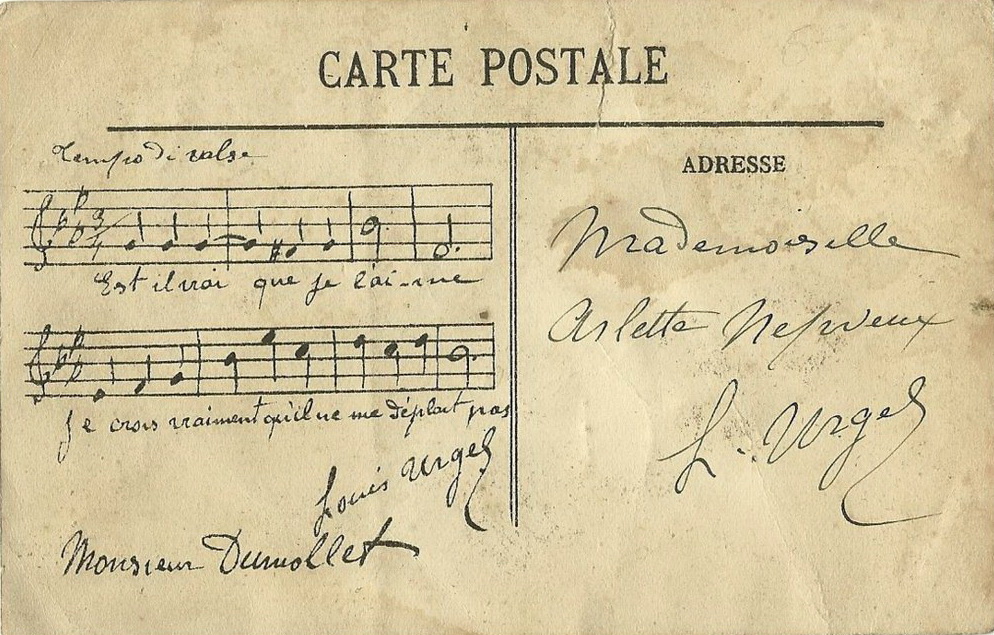 CARTE POSTALE
Tempo di valse
3/4
Est il vrai que je l'ai-me
Je crois vraiment qu'il ne me déplait pas
Louis Urgel
Monsieur Dumollet
ADRESSE
Mademoiselle
Arlette Nepveux
L. Urgel